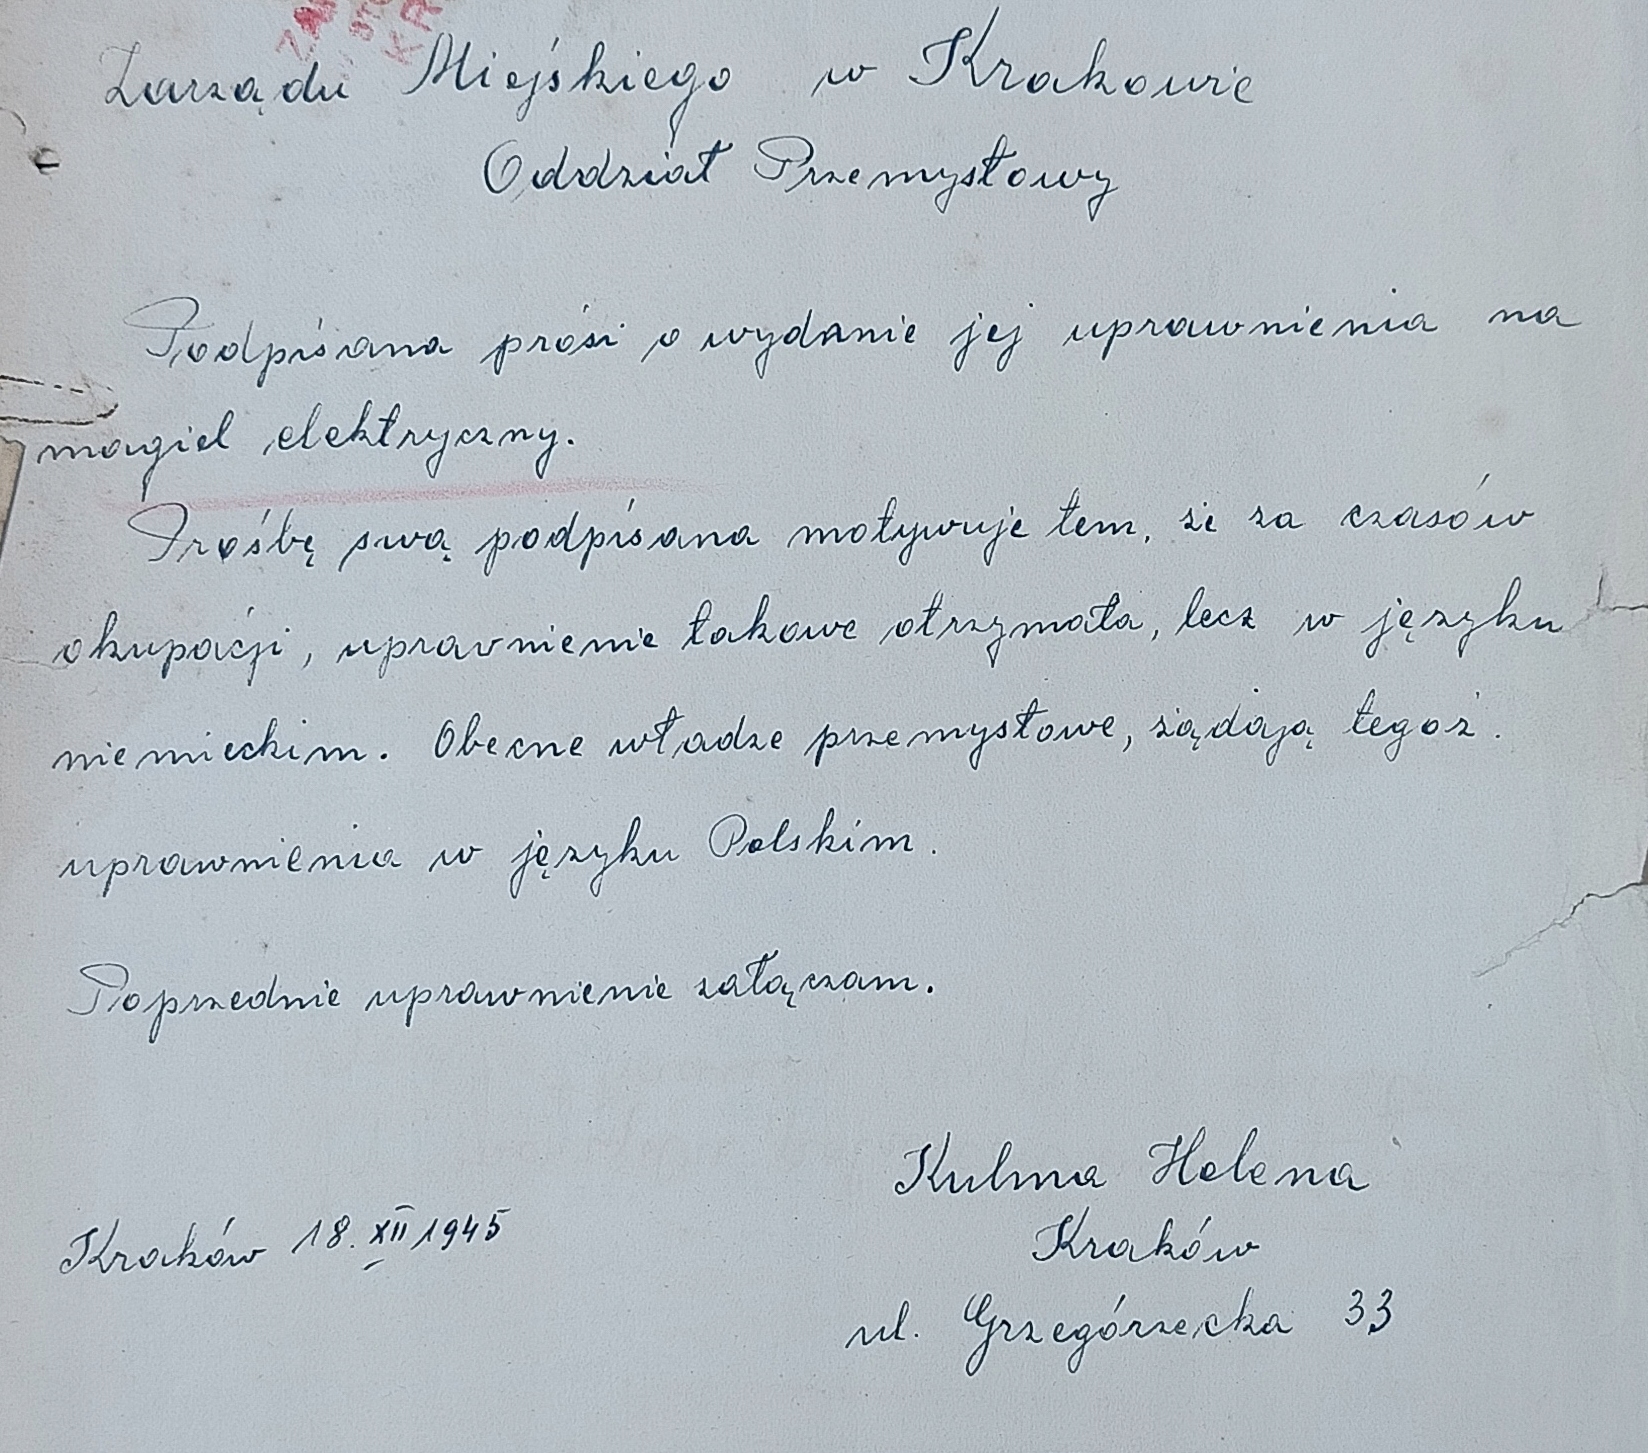 Zarządu Miejskiego w Krakowie
Oddział Przemysłowy
Podpisana prosi o wydanie jej uprawnienia na
magiel elektryczny.
Prośbę swą podpisana motywuje tem, że za czasów
okupacji, uprawnienie takowe otrzymała, lecz w języku
niemieckim. Obecne władze przemysłowe, żądają tegoż.
uprawnienia w języku Polskim.
Poprzednie uprawnienie załączam.
Kulma Helena
Kraków 18. XII 1945
Kraków
ul. Grzegórzecka 33